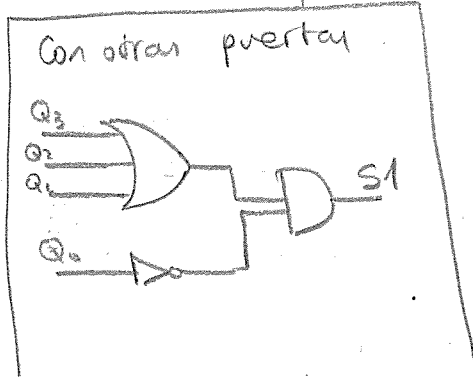 Con otras puertas
Q3
Q2
Q1
S1
Q0